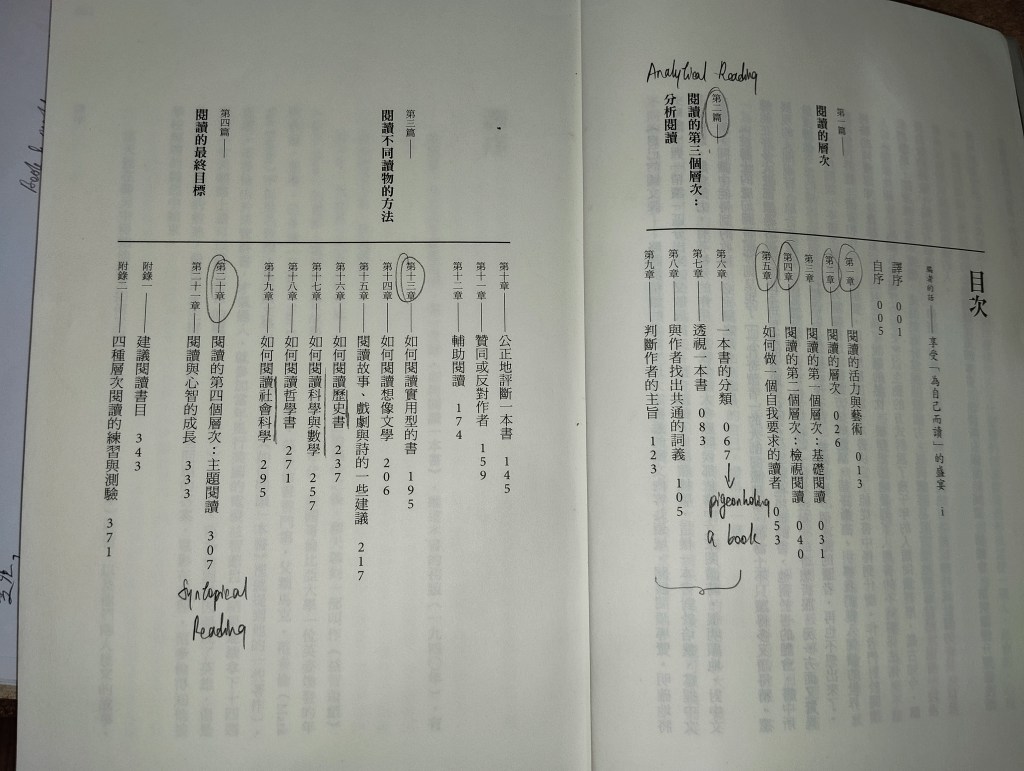 目次
編者的話——享受「為自己而讀」的盛宴 i
譯序 001
自序 005
第一篇——
閱讀的層次
第一章——閱讀的活力與藝術 013
第二章——閱讀的層次 026
第三章——閱讀的第一個層次：基礎閱讀 031
第四章——閱讀的第二個層次：檢視閱讀 040
第五章——如何做一個自我要求的讀者 053
Analytical Reading
第二篇——
閱讀的第三個層次：
分析閱讀
第六章——一本書的分類 067
pigeonholing
a book
第七章——透視一本書 083
第八章——與作者找出共通的詞義 105
第九章——判斷作者的主旨 123
第十章——公正地評斷一本書 145
第十一章——贊同或反對作者 159
第十二章——輔助閱讀 174
第三篇——
閱讀不同讀物的方法
第十三章——如何閱讀實用型的書 195
第十四章——如何閱讀想像文學 206
第十五章——閱讀故事、戲劇與詩的一些建議 217
第十六章——如何閱讀歷史書 237
第十七章——如何閱讀科學與數學 257
第十八章——如何閱讀哲學書 271
第十九章——如何閱讀社會科學 295
第四篇——
閱讀的最終目標
第二十章——閱讀的第四個層次：主題閱讀 307
Syntopical
Reading
第二十一章——閱讀與心智的成長 333
附錄一——建議閱讀書目 343
附錄二——四種層次閱讀的練習與測驗 371